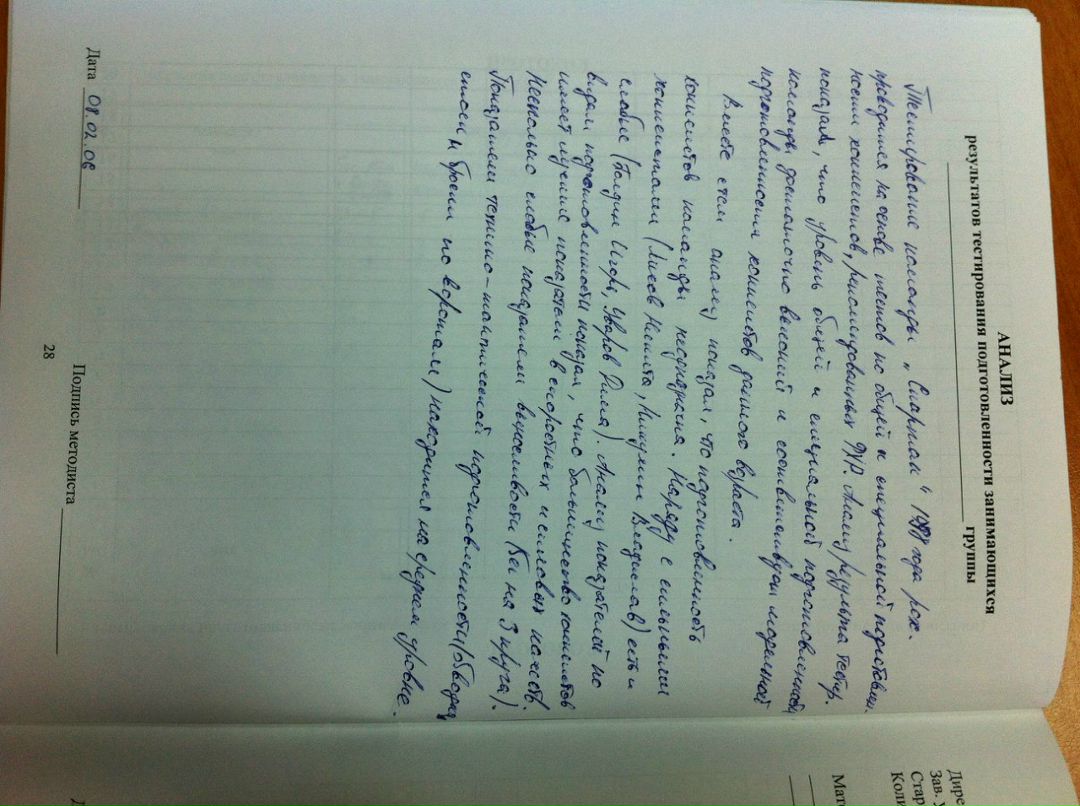 АНАЛИЗ
результатов тестирования подготовленности занимающихся
группы
Тестирование команды "Спартак" 1998 года рож.
проводится на основе тестов по общей и специальной подготовлен-
ности хоккеистов, рекомендованных ФХР. Анализ результ. тестир.
показал, что уровень общей и специальной подготовленности
команды достаточно высокий и соответствует модельной
подготовленности хоккеистов данного возраста.
Вместе с тем анализ показал, что подготовленность
хоккеистов команды неоднородна. Наряду с сильными
хоккеистами (Никита, Владислав) есть и
слабые (Игорь, Уваров Дима). Анализ показателей по
видам подготовленности показал, что большинство хоккеистов
имеет лучшие показатели в скоростных и силовых качеств.
Несколько слабые показатели выносливости (бег на 3 круга).
Показатели технико-тактической подготовленности (обводка
стоек и броски по воротам) находится на среднем уровне.
Дата 08.02.06
Подпись методиста
28
Дире
Зав. У
Стар
Коли
Мат